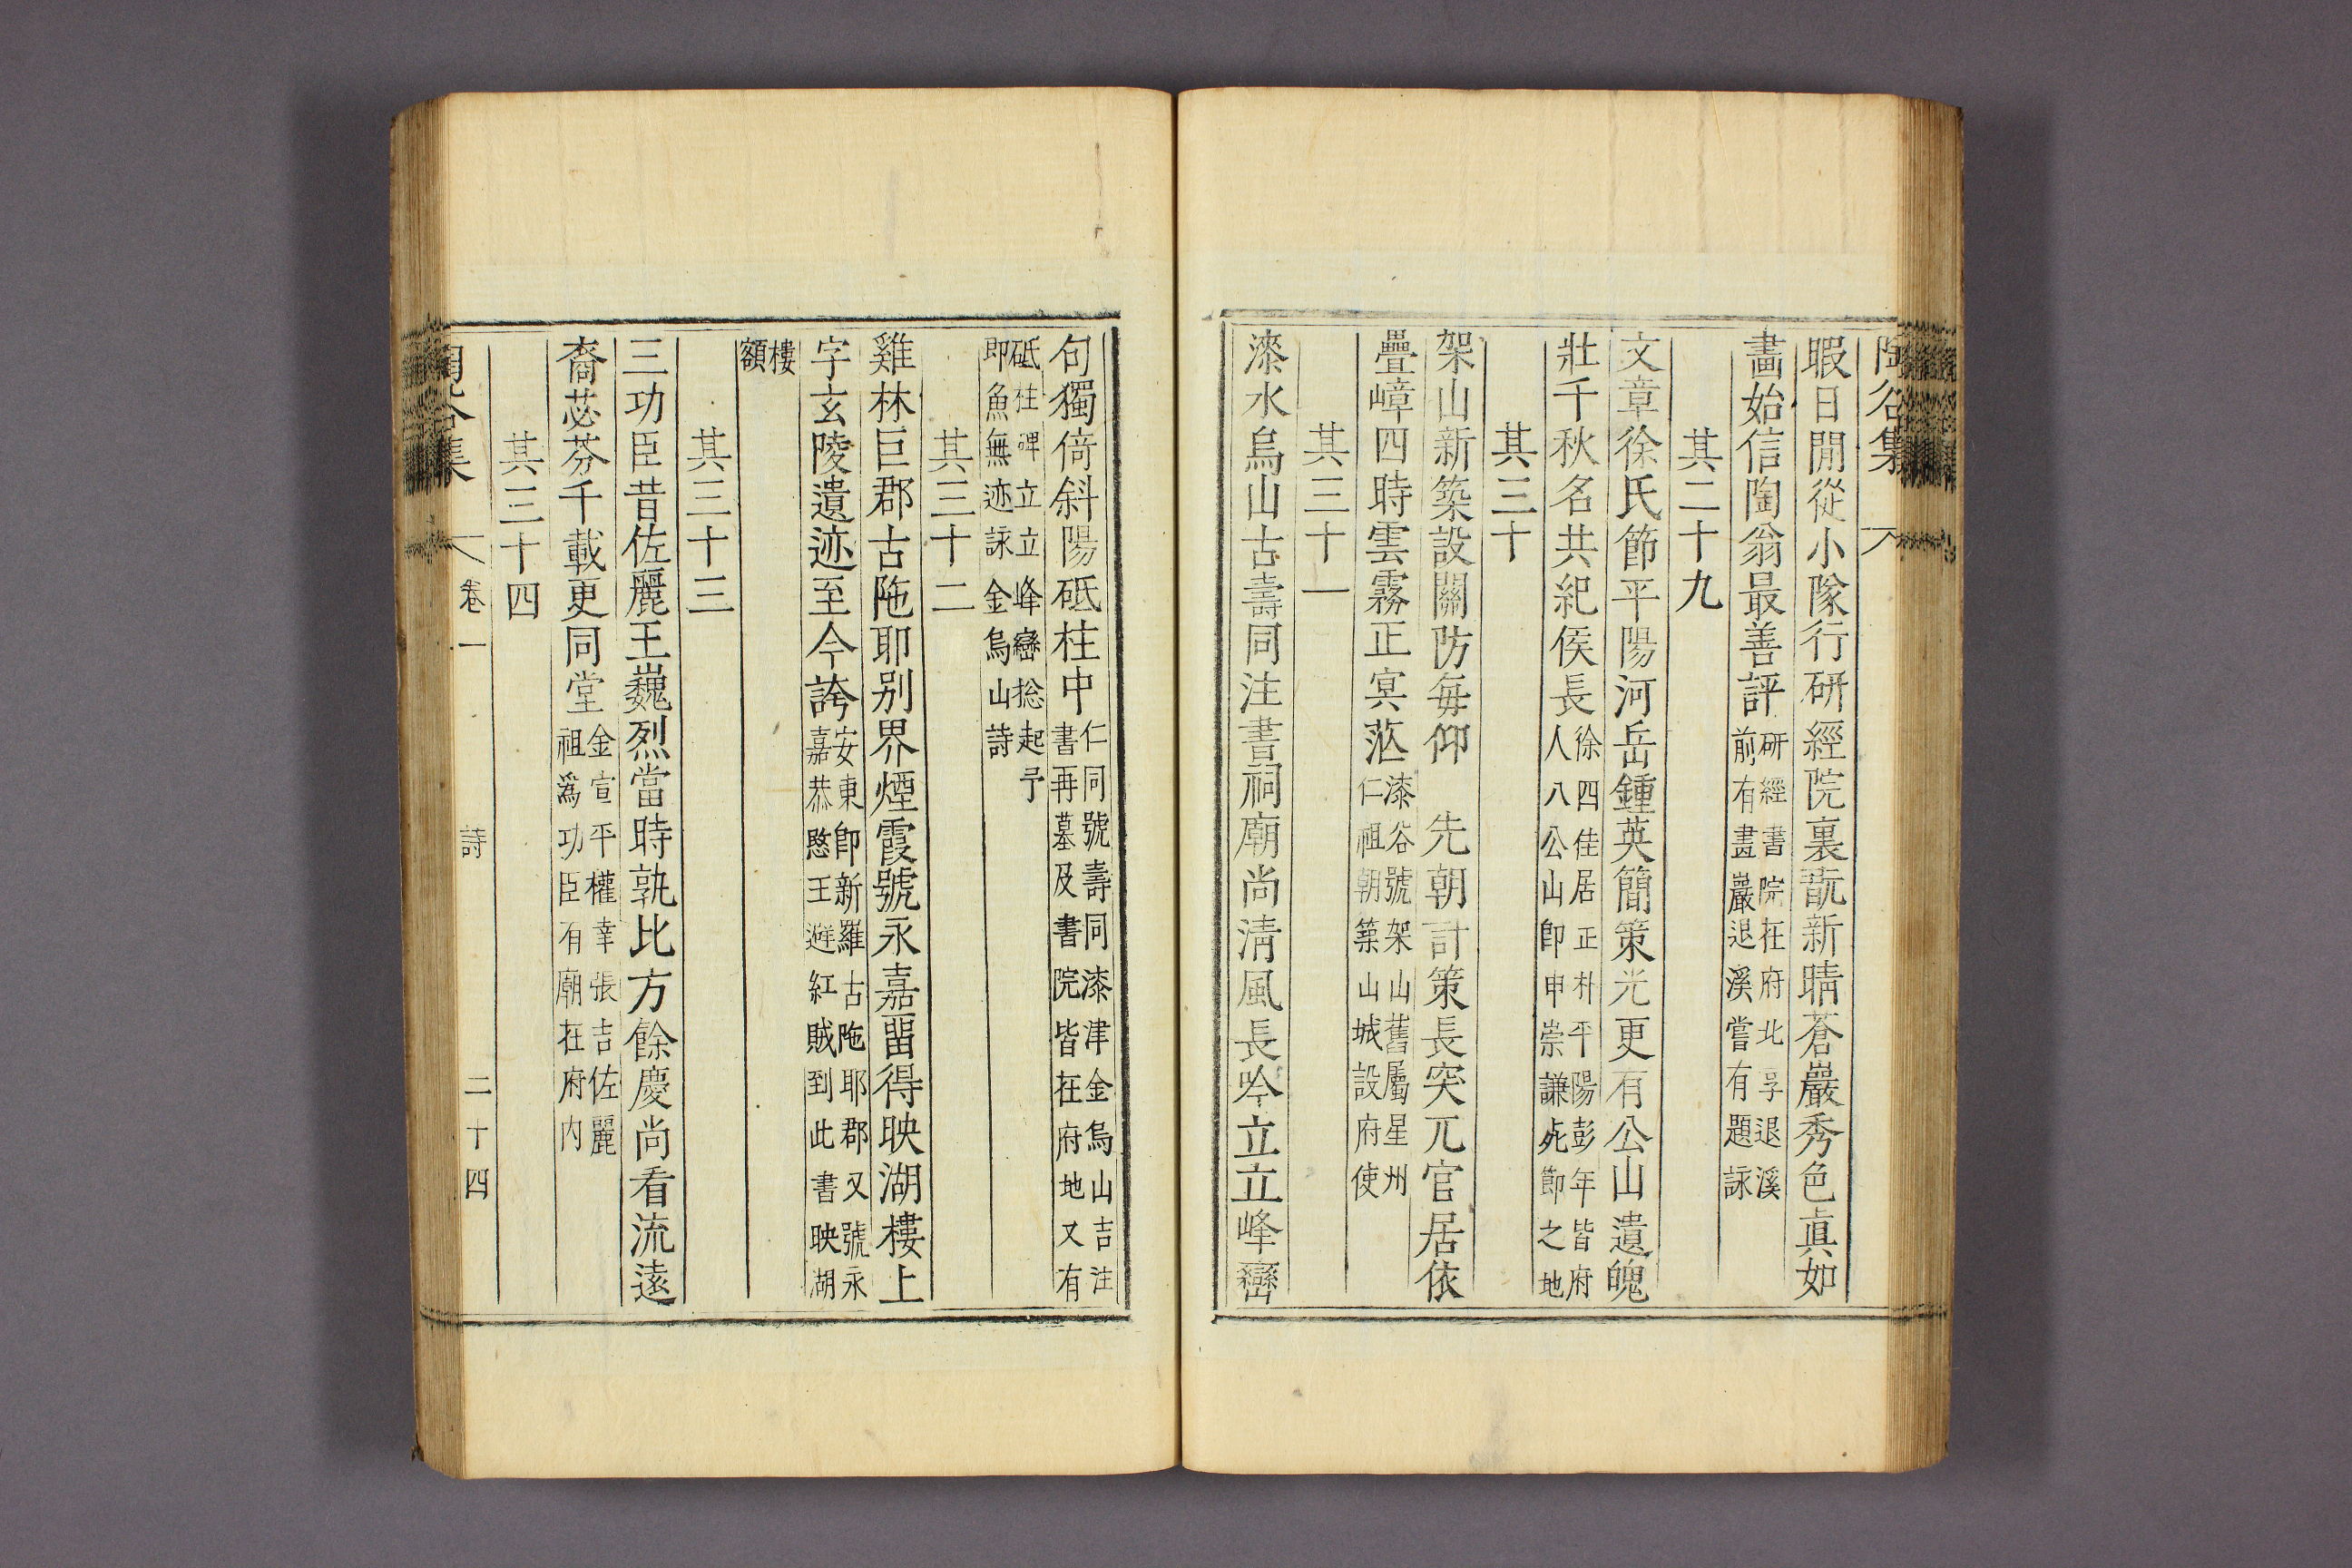 陶谷集
暇日閒從小隊行研經院裏翫新晴蒼巖秀色眞如
畵始信陶翁最善評研經書院在府北享退溪
前有畵巖退溪嘗有題詠
其二十九
文章徐氏節平陽河岳鍾英簡策光更有公山遺魄
壯千秋名共紀侯長徐四佳居正朴平陽彭年皆府
人八公山卽申崇謙死節之地
其三十
架山新築設關防每仰 先朝計策長突兀官居依
疊嶂四時雲霧正冥茫漆谷號架山舊屬星州
仁祖朝築山城設府使
其三十一
漆水烏山古壽同注書祠廟尚淸風長吟立立峰巒
句獨倚斜陽砥柱中仁同號壽同漆津金烏山吉注
書再墓及書院皆在府地又有
砥柱碑立立峰巒捴起予
即魚無迹詠金烏山詩
其三十二
雞林巨郡古陁耶别界煙霞號永嘉畱得映湖樓上
字玄陵遺迹至今誇安東卽新羅古陁耶郡又號永
嘉恭愍王避紅賊到此書映湖
樓
額
其三十三
三功臣昔佐麗王巍烈當時孰比方餘慶尚看流遠
裔苾芬千載更同堂金宣平權幸張吉佐麗
祖爲功臣有廟在府内
其三十四
陶谷集 卷一 詩 二十四